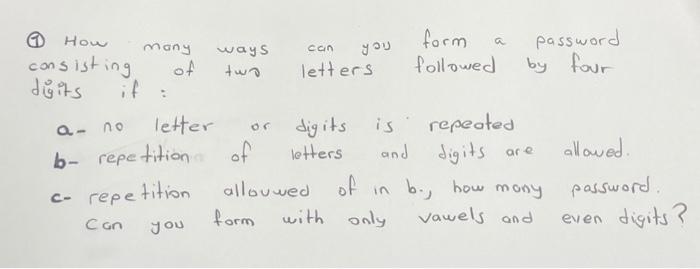 ① How many ways can you form a password
consisting of two letters followed by four
digits if :
a- no letter or digits is repeated
b- repetition of letters and digits are allowed.
c- repetition allouwed of in b., how many password.
Can you form with only vawels and even digits?